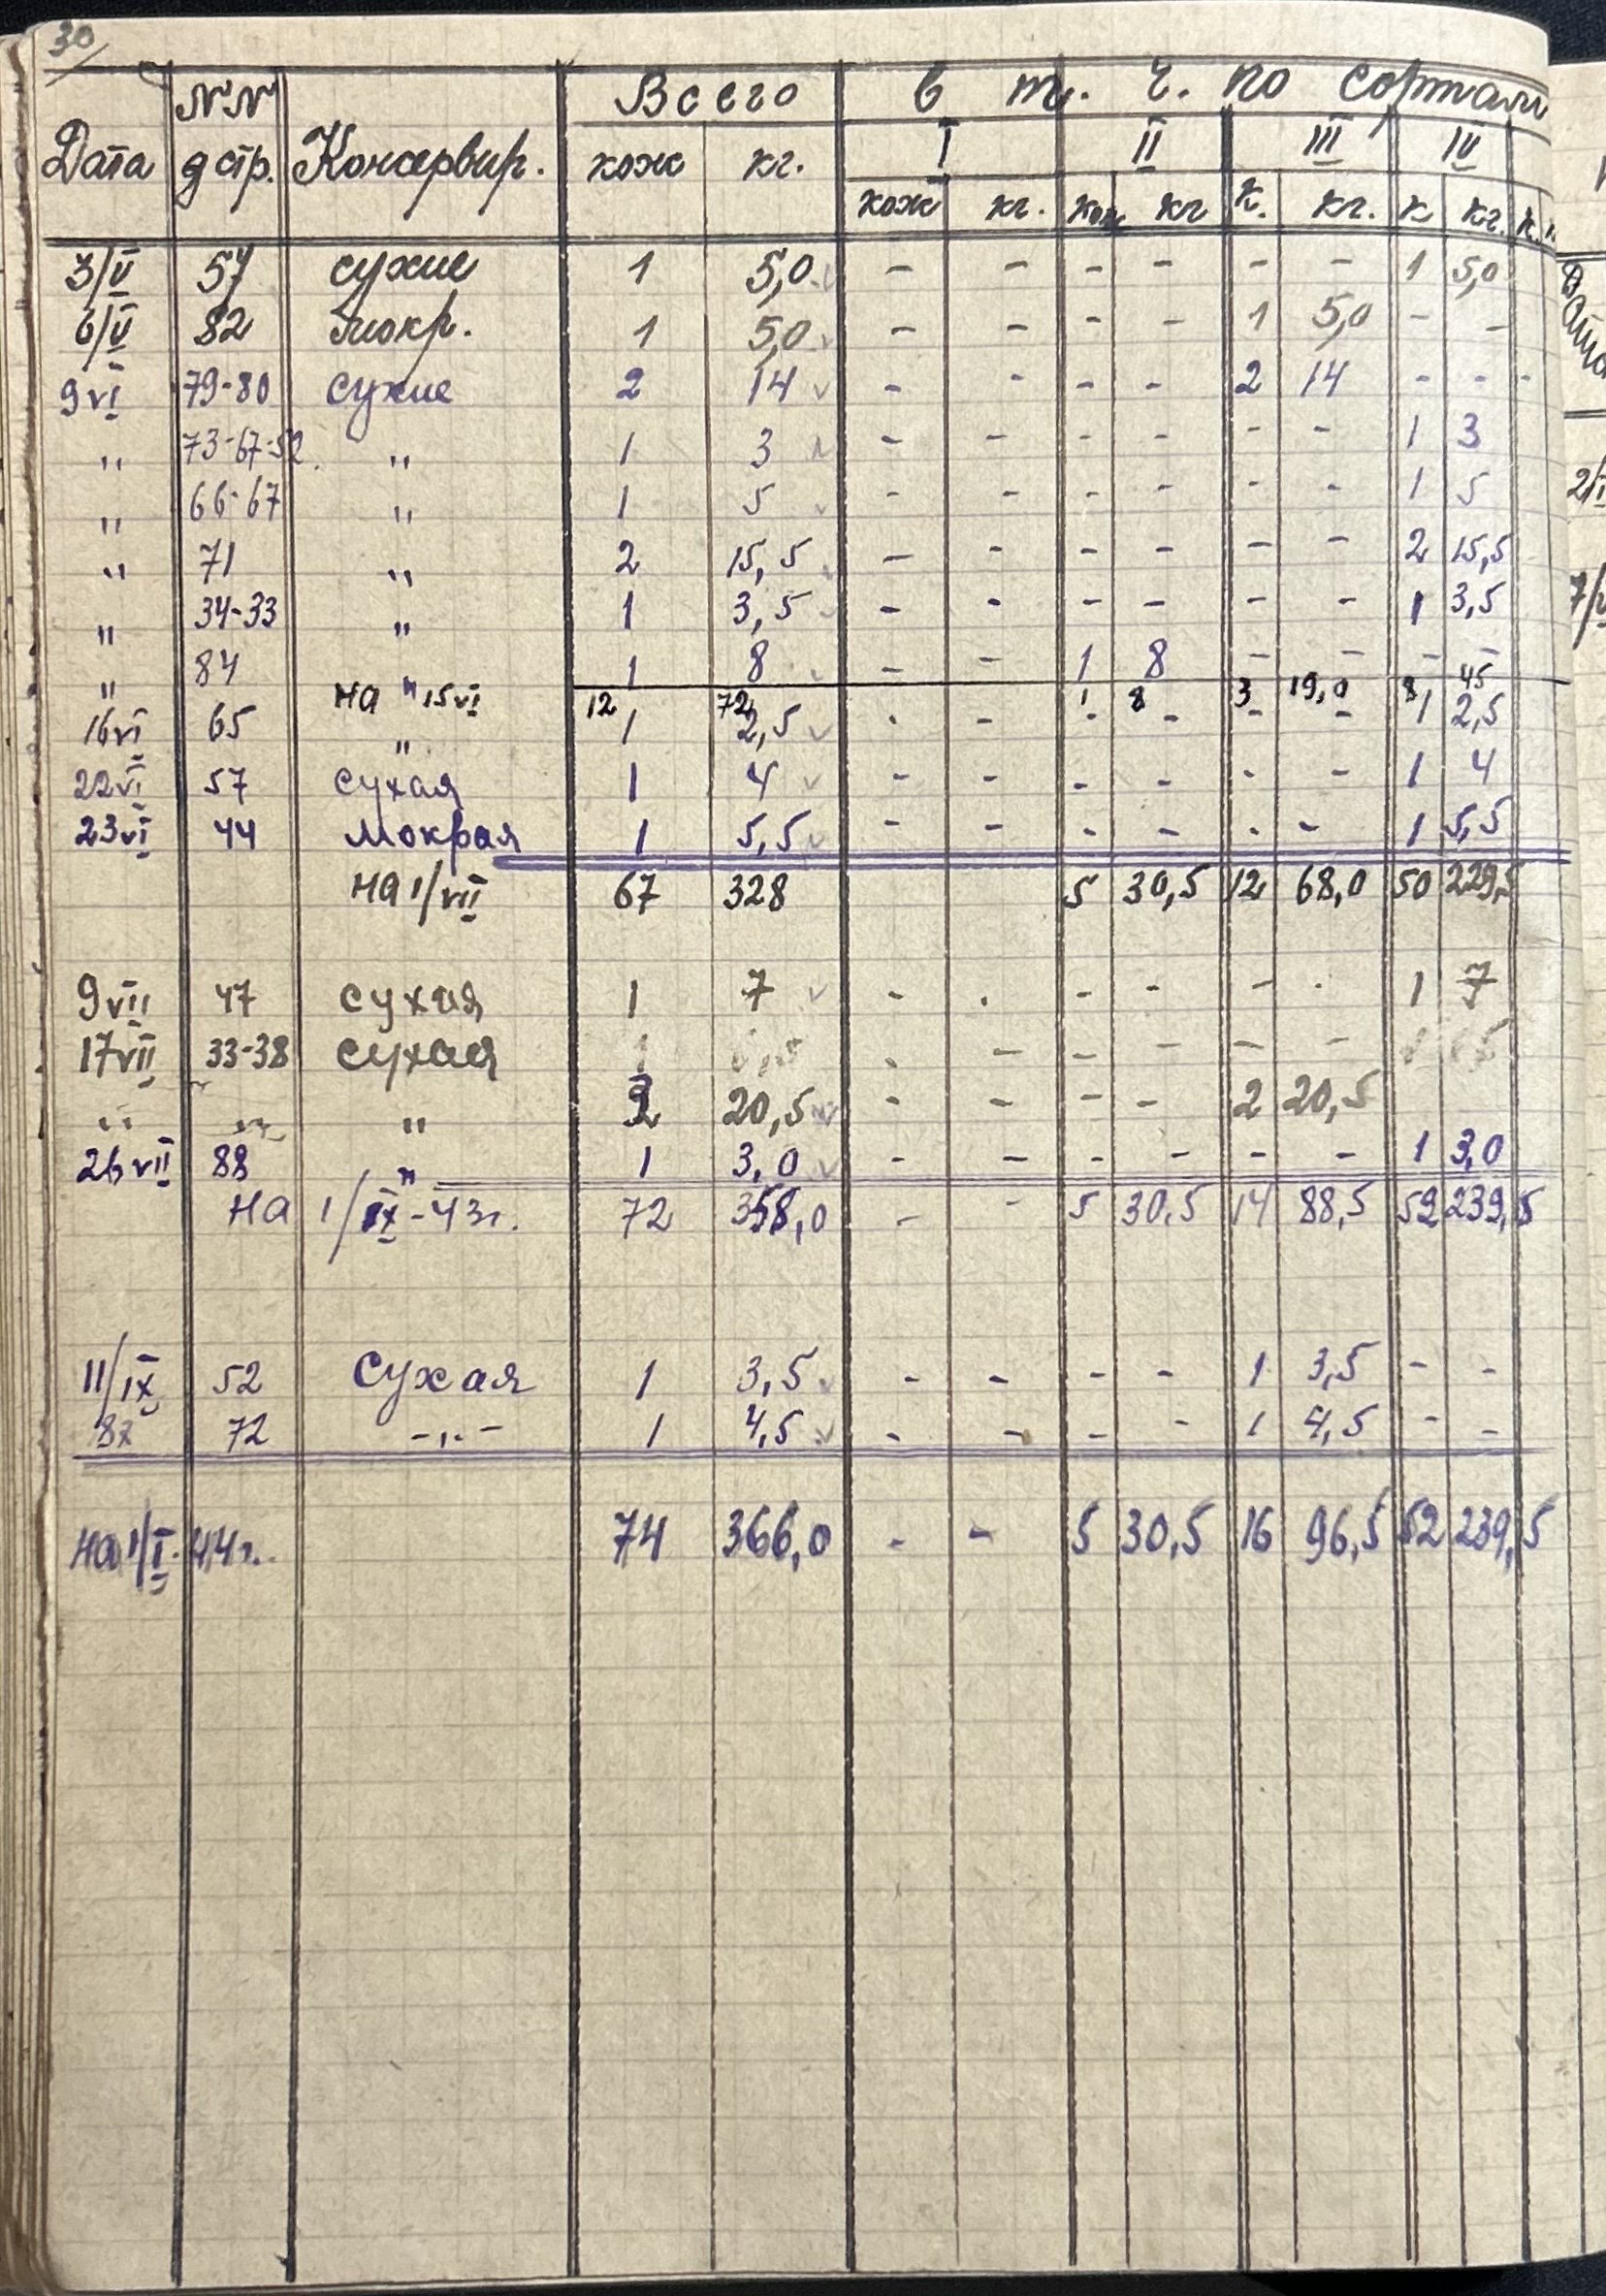 30
Дата №№ дстр. Консервир. Всего в т. ч. по сортам
кож кг. I II III IV
кож кг. кож кг к. кг. к кг. к.
3/V 57 сухие 1 5,0 - - - - - - 1 5,0
6/V 82 мокр. 1 5,0 - - - - 1 5,0 - -
9 VI 79-80 сухие 2 14 - - - - 2 14 - - -
" 73-67-52. " 1 3 - - - - - - 1 3
" 66-67 " 1 5 - - - - - - 1 5
" 71 " 2 15,5 - - - - - - 2 15,5
" 34-33 " 1 3,5 - - - - - - 1 3,5
" 84 " 1 8 - - 1 8 - - - -
на 15 VI 12 72 1 8 3 19,0 8 45
16 VI 65 " 1 2,5 - - - - - - 1 2,5
22 VI 57 сухая 1 4 - - - - - - 1 4
23 VI 44 мокрая 1 5,5 - - - - - - 1 5,5
на 1/VII 67 328 5 30,5 12 68,0 50 229,5
9 VII 47 сухая 1 7 - - - - - - 1 7
17 VII 33-38 сухая - - - - - -
" " " 2 20,5 - - - - 2 20,5
26 VII 88 " 1 3,0 - - - - - - 1 3,0
на 1/IX-43г. 72 358,0 - - 5 30,5 14 88,5 52 239,5
11/IX 52 сухая 1 3,5 - - - - 1 3,5 - -
8X 72 -"- 1 4,5 - - - - 1 4,5 - -
на 1/I-44г. 74 366,0 - - 5 30,5 16 96,5 52 239,5